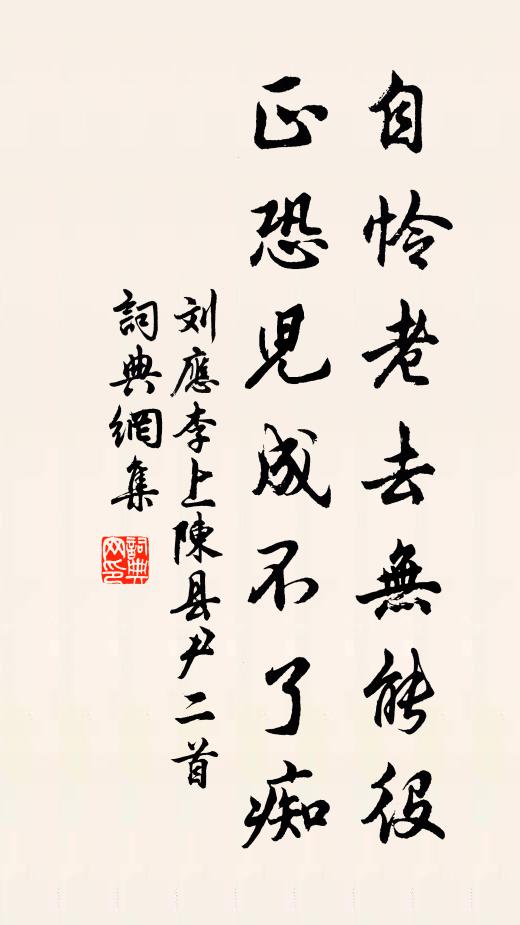 自怜老去無能役
正恐児成不了痴
刘應李上陳县尹二首
詞典網集
詞典網印